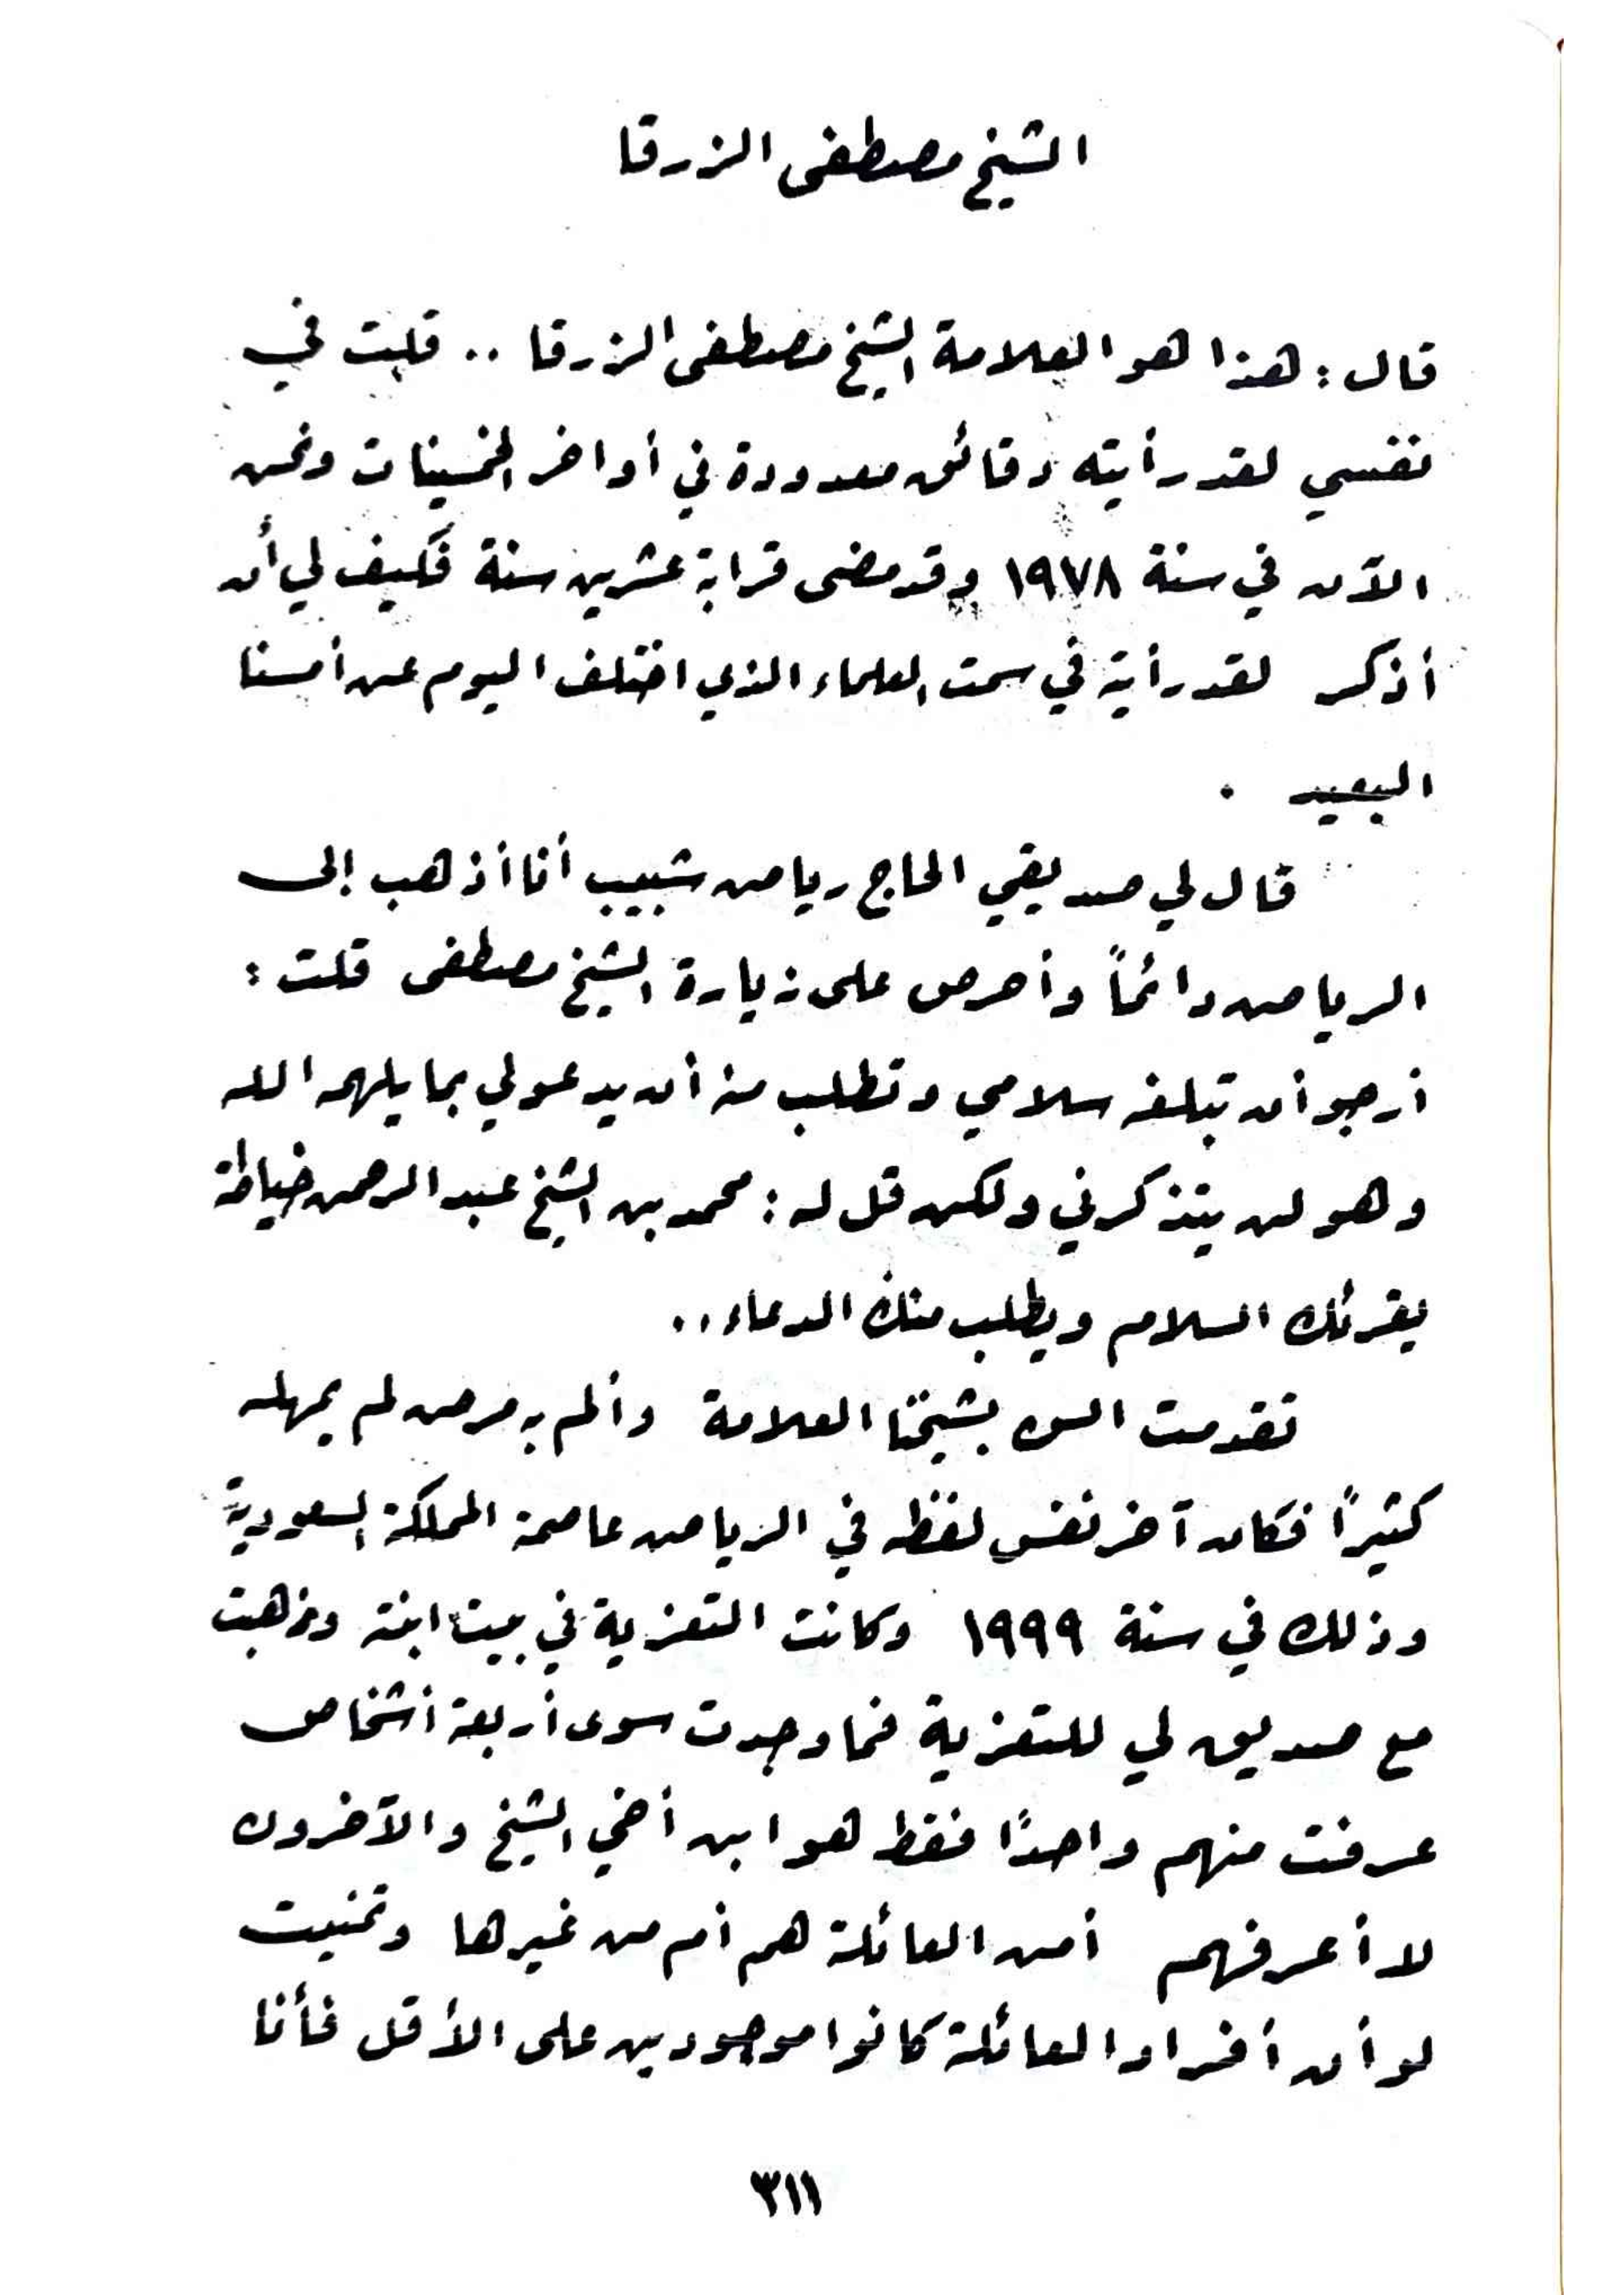 الشيخ مصطفى الزرقا
قال : هذا هو العلامة الشيخ مصطفى الزرقا .. قلت في
نفسي لقد رأيته دقائق معدودة في أواخر الخمسينات ونحن
الآن في سنة ١٩٧٨ وقد مضى قرابة عشرين سنة فكيف لي أن
أذكر لقد رأيته في سمت العلماء الذي اختلف اليوم عن أمسنا
البعيد .
قال لي صديقي الحاج رياض شبيب أنا أذهب إلى
الرياض دائماً وأحرص على زيارة الشيخ مصطفى قلت :
أرجو أن تبلغه سلامي وتطلب منه أن يدعو لي بما يلهمه الله
وهو لن يتذكرني ولكن قل له : محمد بن الشيخ عبد الرحمن خياطة
يقرئك السلام ويطلب منك الدعاء ..
تقدمت السن بشيخنا العلامة وألم به مرض لم يمهله
كثيراً فكان آخر نفس لفظه في الرياض عاصمة المملكة السعودية
وذلك في سنة ١٩٩٩ وكانت التعزية في بيت ابنته وذهبت
مع صديق لي للتعزية فما وجدت سوى أربعة أشخاص
عرفت منهم واحدًا فقط هو ابن أخي الشيخ والآخرون
لا أعرفهم أمن العائلة هم أم من غيرها وتمنيت
لو أن أفراد العائلة كانوا موجودين على الأقل فأنا
٣١١